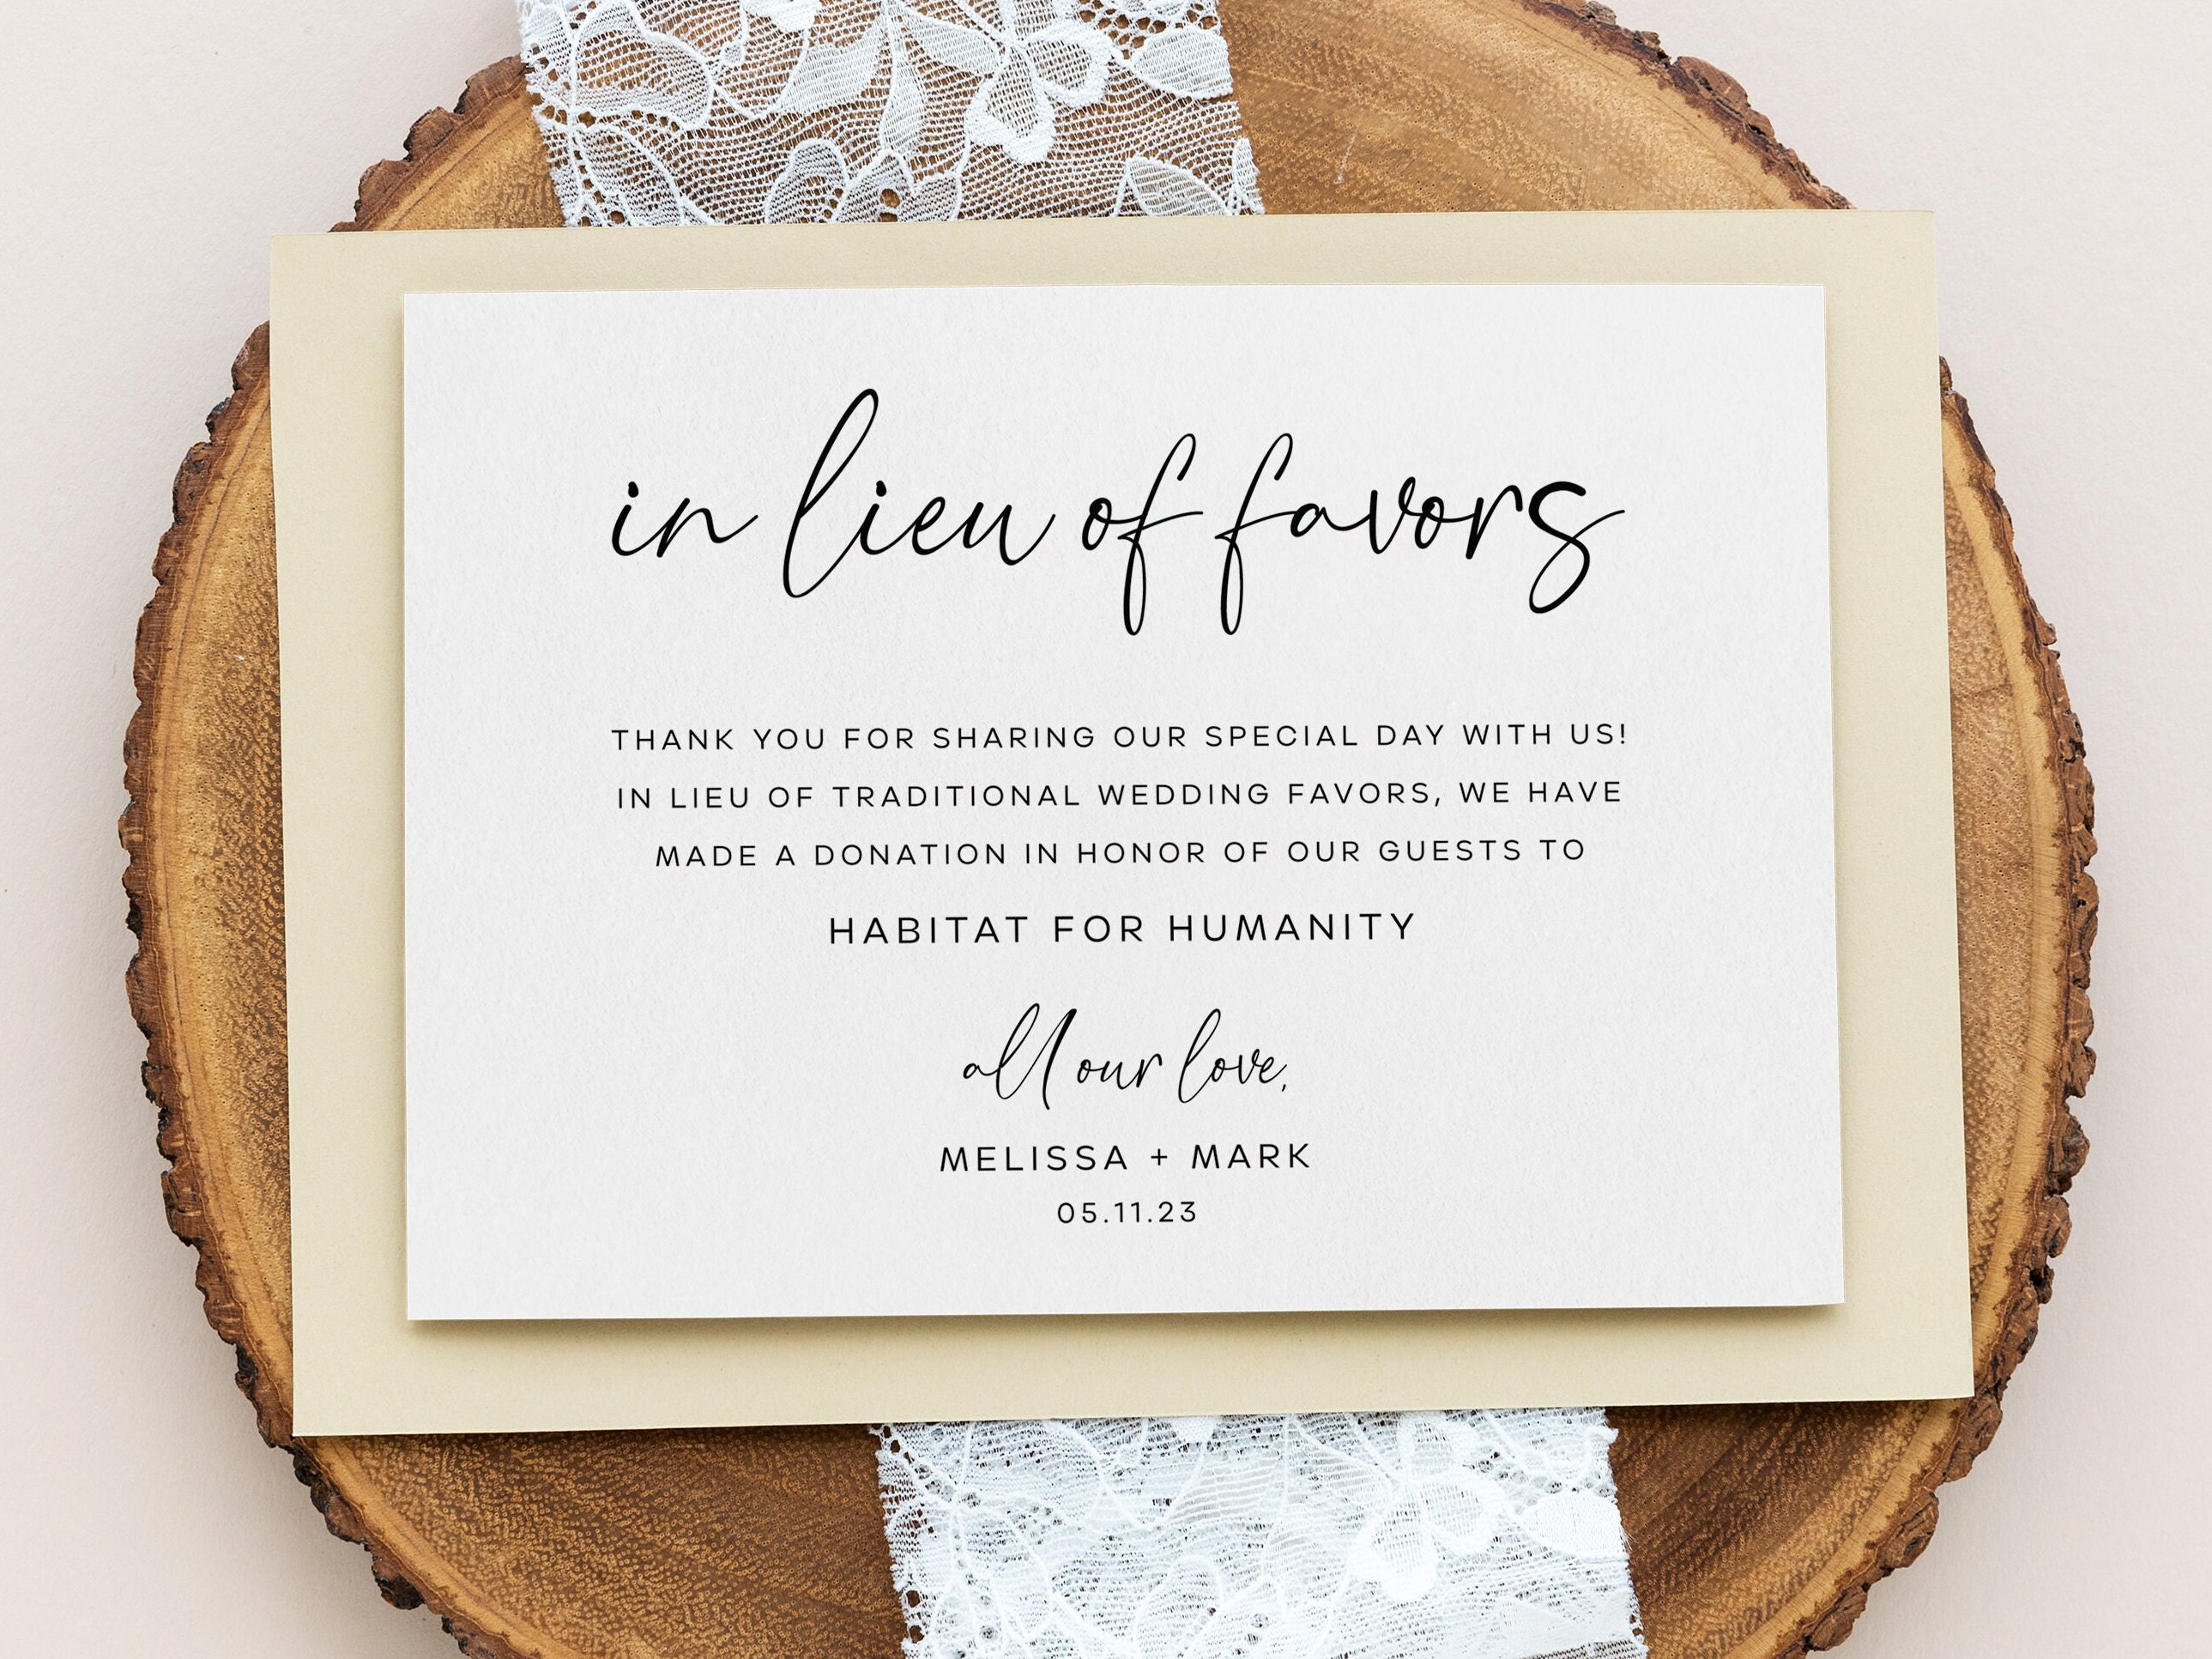 in lieu of favors
THANK YOU FOR SHARING OUR SPECIAL DAY WITH US!
IN LIEU OF TRADITIONAL WEDDING FAVORS, WE HAVE
MADE A DONATION IN HONOR OF OUR GUESTS TO
HABITAT FOR HUMANITY
all our love,
MELISSA + MARK
05.11.23